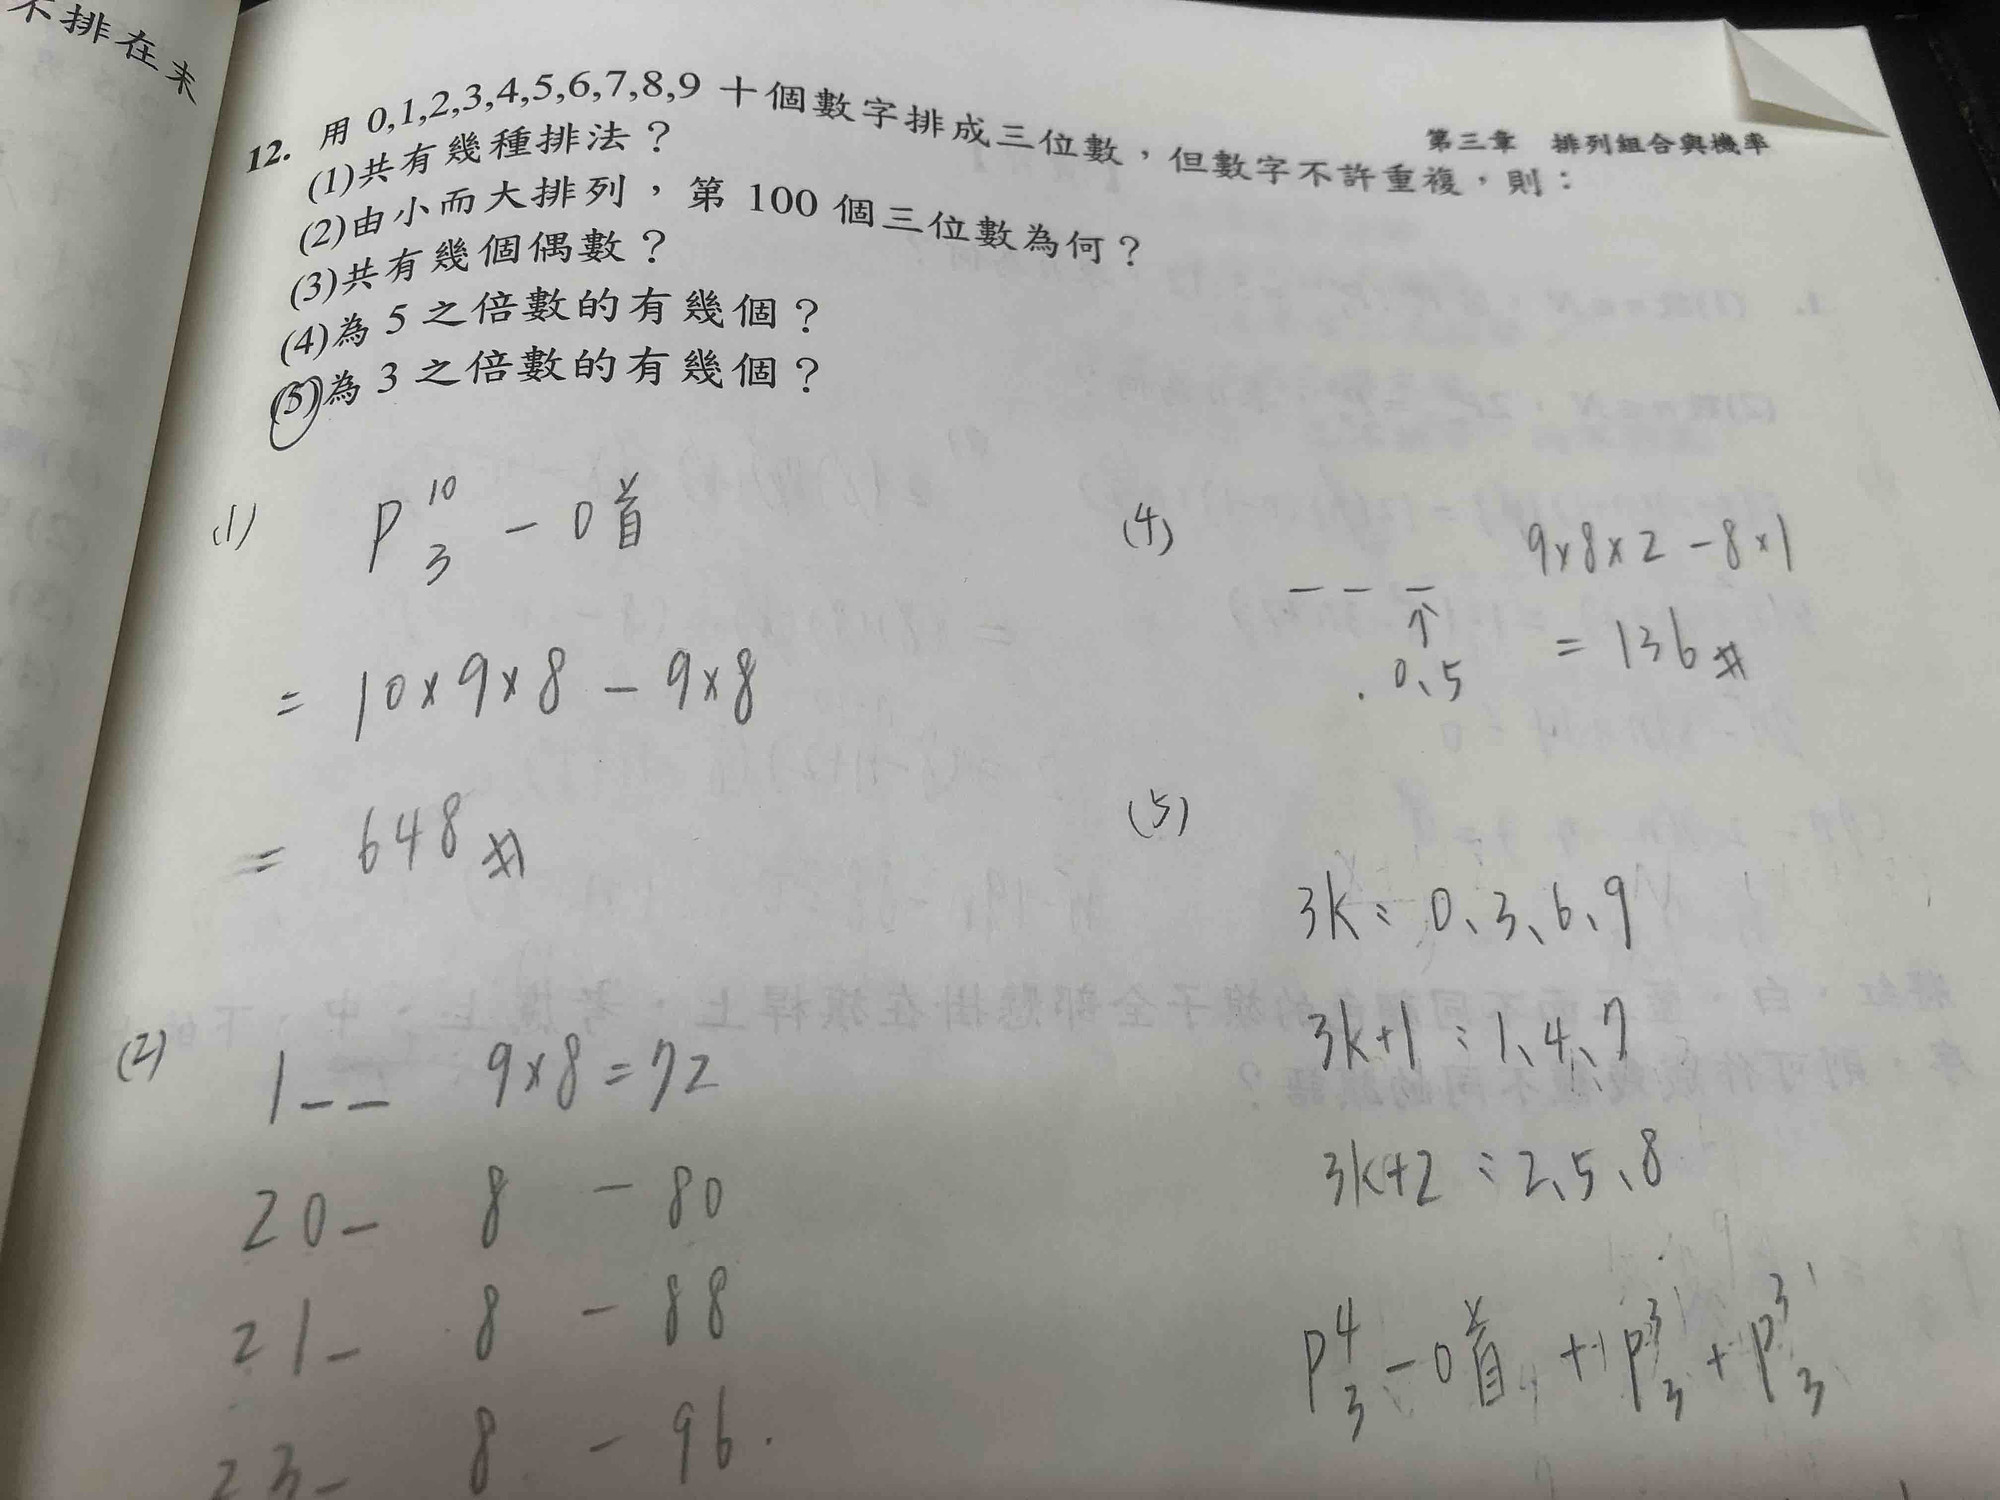 不排在末
第三章 排列組合與機率
12. 用 0,1,2,3,4,5,6,7,8,9 十個數字排成三位數，但數字不許重複，則：
(1)共有幾種排法？
(2)由小而大排列，第 100 個三位數為何？
(3)共有幾個偶數？
(4)為 5 之倍數的有幾個？
(5)為 3 之倍數的有幾個？
(1) P^{10}_{3} - 0首
= 10×9×8 - 9×8
= 648 #
(2) 1 _ _ 9×8=72
20_ 8 - 80
21_ 8 - 88
23_ 8 - 96.
(4) _ _ _ 9×8×2-8×1
↑
0、5
= 136 #
(5)
3k: 0、3、6、9
3k+1: 1、4、7
3k+2: 2、5、8
P^{4}_{3} - 0首 + P^{3}_{3} + P^{3}_{3}